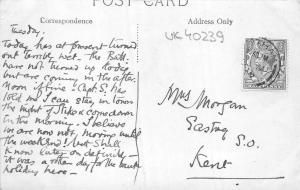 POST CARD
Correspondence
Address Only
UK 40239
Tuesday,
Today has at present turned
out terribly wet. The Batt.
have not turned up today
but are coming in the after
noon if fine. Capt S. has
told me I can stay in town
the night & take a comedown
in the morning. I believe
we are now not, moving until
the weekend! but shall
know later on definite -
it was a rather day for the bank
holiday here -
Mrs Morgan
Eastry
S.O.
Kent